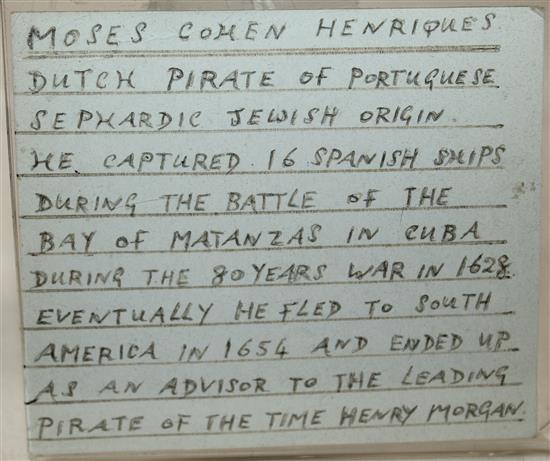 MOSES COHEN HENRIQUES
DUTCH PIRATE OF PORTUGUESE
SEPHARDIC JEWISH ORIGIN.
HE CAPTURED 16 SPANISH SHIPS
DURING THE BATTLE OF THE
BAY OF MATANZAS IN CUBA
DURING THE 80 YEARS WAR IN 1628.
EVENTUALLY HE FLED TO SOUTH
AMERICA IN 1654 AND ENDED UP
AS AN ADVISOR TO THE LEADING
PIRATE OF THE TIME HENRY MORGAN.